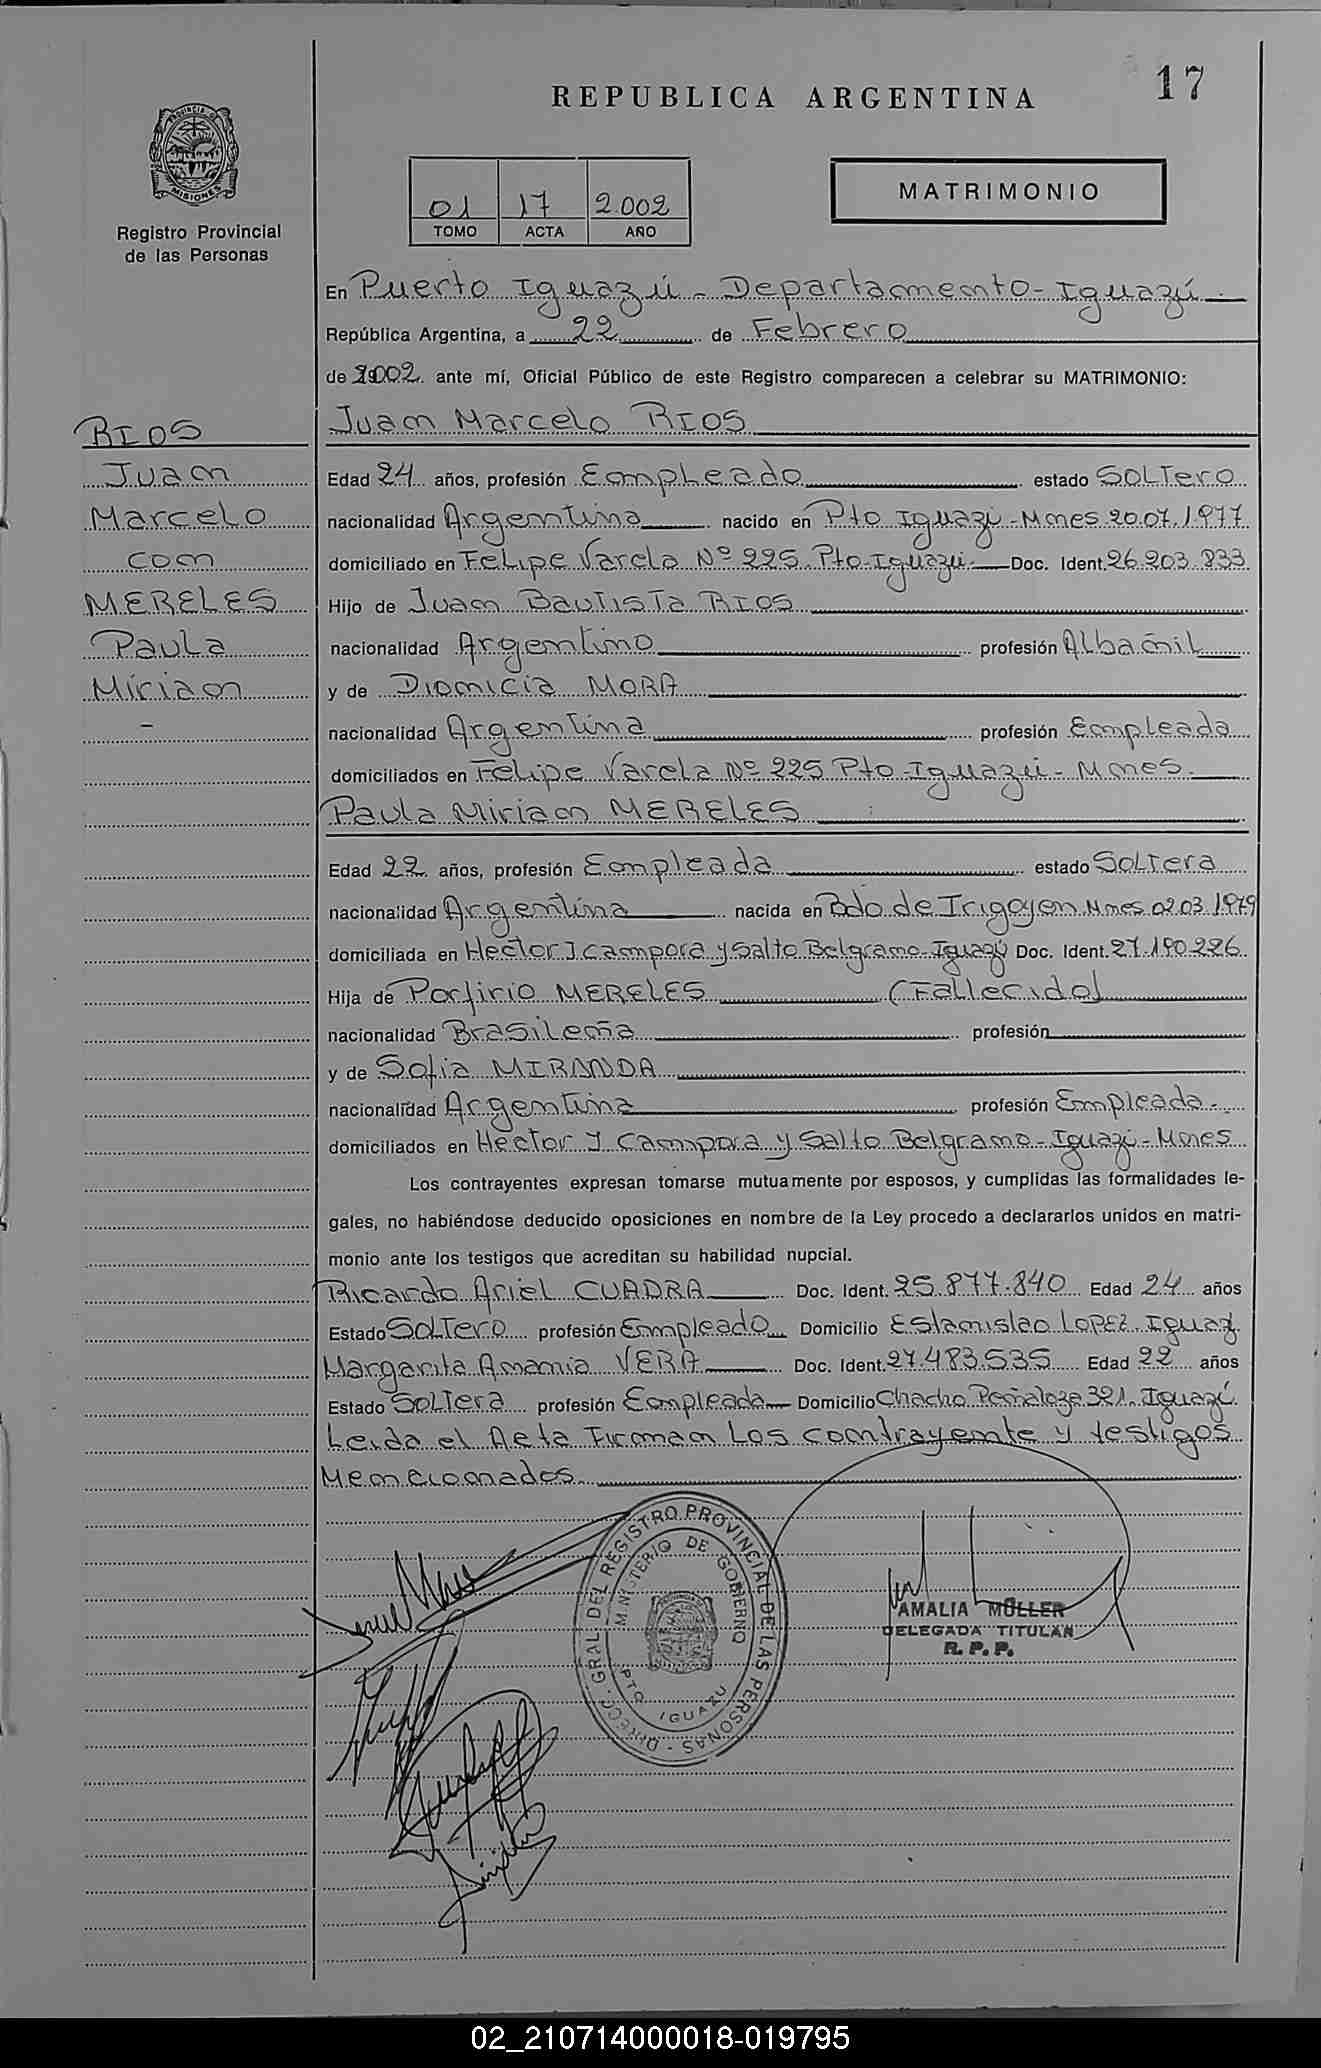 17
REPUBLICA ARGENTINA
PROVINCIA DE MISIONES
Registro Provincial
de las Personas
MATRIMONIO
01 17 2.002
TOMO ACTA AÑO
En Puerto Iguazú - Departamento - Iguazú
República Argentina, a 22 de Febrero
de 2002. ante mí, Oficial Público de este Registro comparecen a celebrar su MATRIMONIO:
RIOS
Juan
Marcelo
con
MERELES
Paula
Miriam
-
Juan Marcelo RIOS
Edad 24 años, profesión Empleado estado Soltero
nacionalidad Argentina nacido en Pto Iguazú - Mnes 20.07.1977
domiciliado en Felipe Varela Nº 225 Pto - Iguazú - Doc. Ident. 26.203.833
Hijo de Juan Bautista RIOS
nacionalidad Argentino profesión Albañil
y de Diomicia MORA
nacionalidad Argentina profesión Empleada
domiciliados en Felipe Varela Nº 225 Pto - Iguazú - Mnes.
Paula Miriam MERELES
Edad 22 años, profesión Empleada estado Soltera
nacionalidad Argentina nacida en Bdo de Irigoyen Mnes 02.03.1979
domiciliada en Hector J Campora y Salto Belgrano - Iguazú Doc. Ident. 27.190.226
Hija de Porfirio MERELES (Fallecido)
nacionalidad Brasileña profesión
y de Sofia MIRANDA
nacionalidad Argentina profesión Empleada -
domiciliados en Hector J Campora y Salto Belgrano - Iguazú - Mnes
Los contrayentes expresan tomarse mutuamente por esposos, y cumplidas las formalidades le-
gales, no habiéndose deducido oposiciones en nombre de la Ley procedo a declararlos unidos en matri-
monio ante los testigos que acreditan su habilidad nupcial.
Ricardo Ariel CUADRA Doc. Ident. 25.877.840 Edad 24 años
Estado Soltero profesión Empleado Domicilio Estanislao Lopez Iguaz.
Margarita Anamia VERA Doc. Ident. 27.483.535 Edad 22 años
Estado Soltera profesión Empleada Domicilio Chacho Peñaloza 321. Iguazú
Leida el Acta Firman Los contrayente y testigos
Mencionados.
DIRECC. GRAL. DEL REGISTRO PROVINCIAL DE LAS PERSONAS -
MINISTERIO DE GOBIERNO
PTO IGUAZU
AMALIA MÜLLER
DELEGADA TITULAR
R. P. P.
02_210714000018-019795